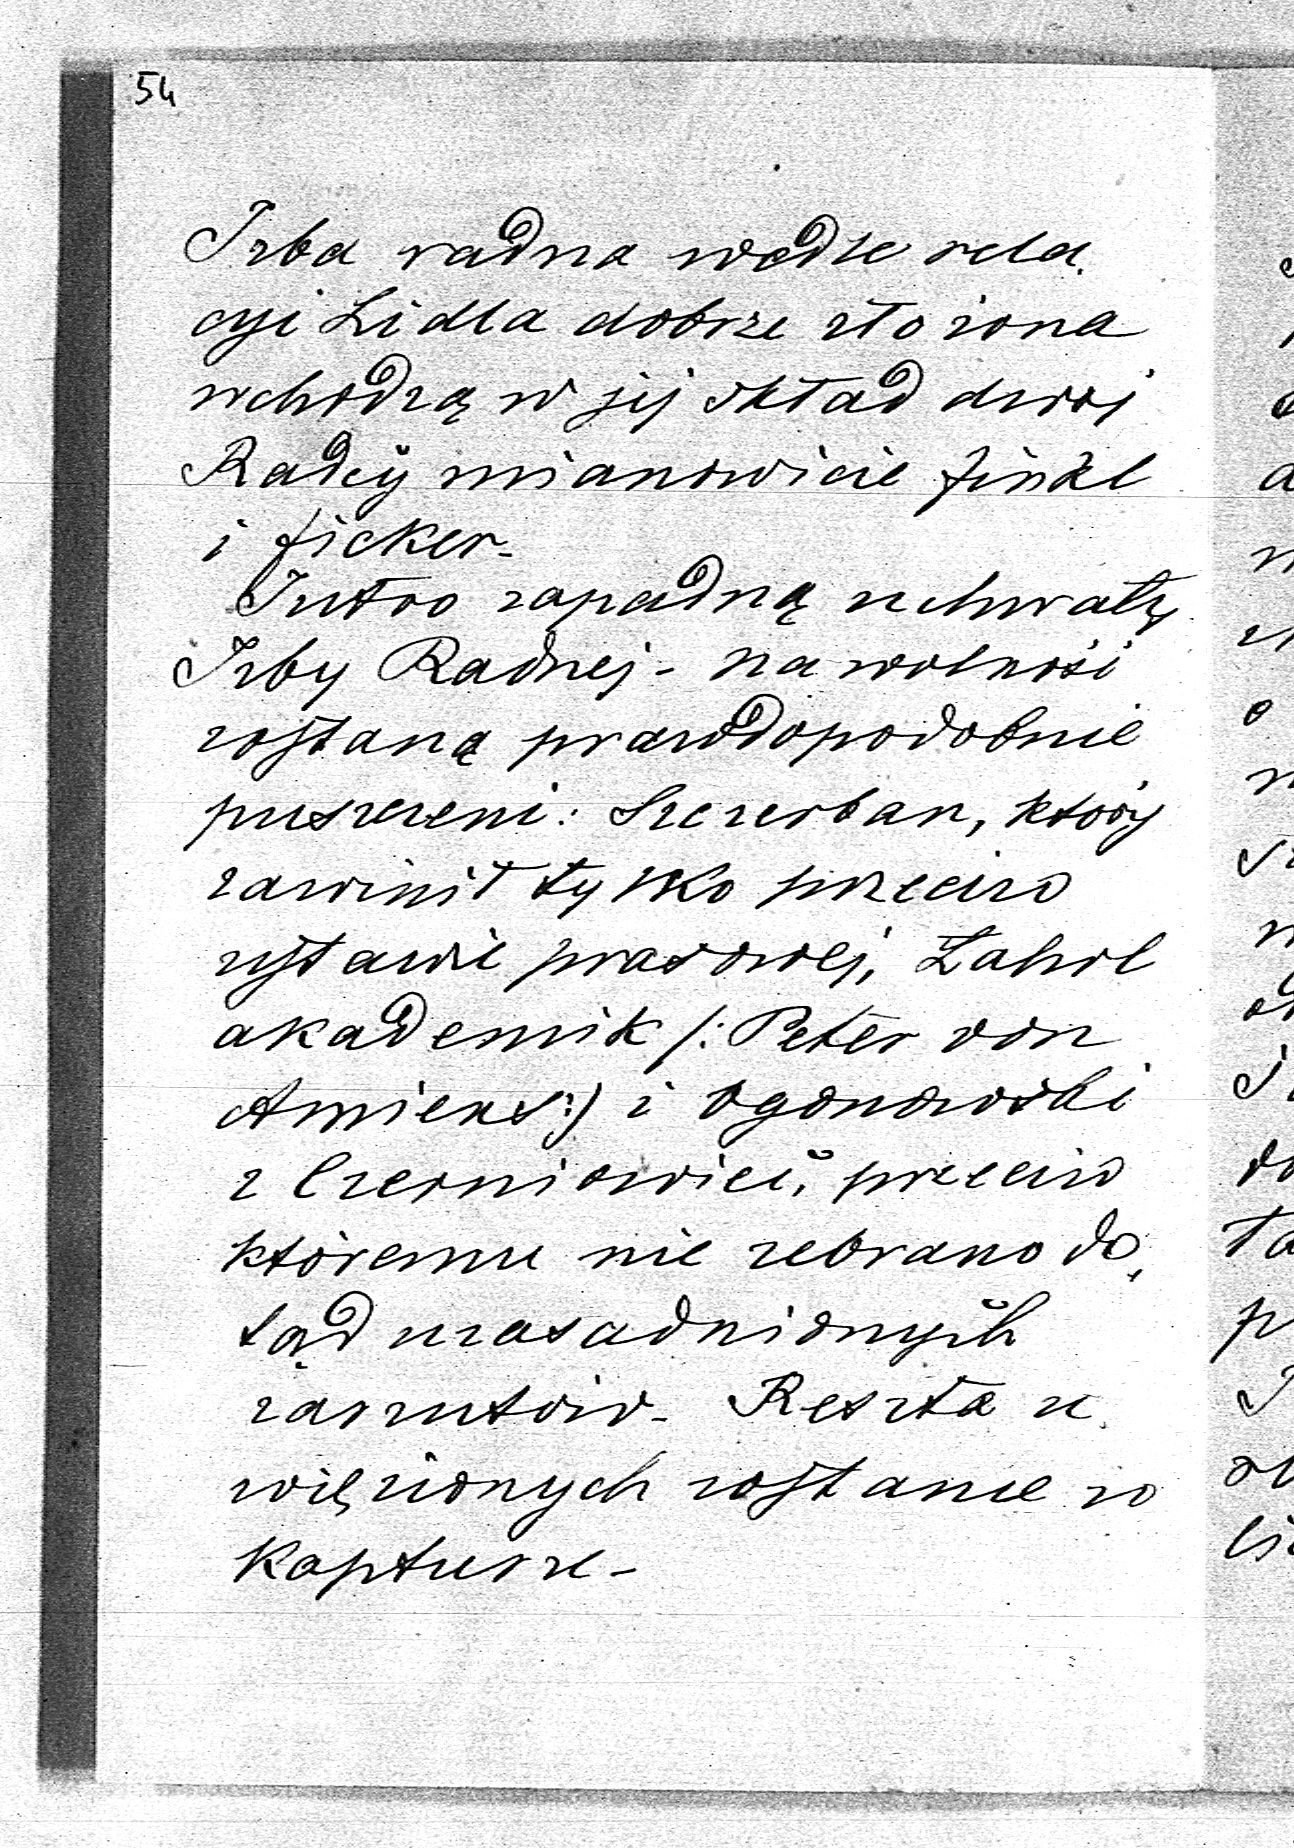 54
Izba radna wedle rela
cyi Lidla dobrze złożona
wchodzą w jej skład dwoj
Radcy mianowicie Finkl
i Ficker-
Jutro zapadną uchwały
Izby Radnej - na wolności
zostaną prawdopodobnie
puszczeni: Szczerban, który
zawinił tylko przeciw
ustawie prasowej, Zahrl
akademik /: Peter von
Amiens :) i Ogonowski
z Czerniowiec, przeciw
któremu nie zebrano do,
tąd uzasadnionych
zarzutów - Reszta u
więzionych zostanie w
Kapturze -